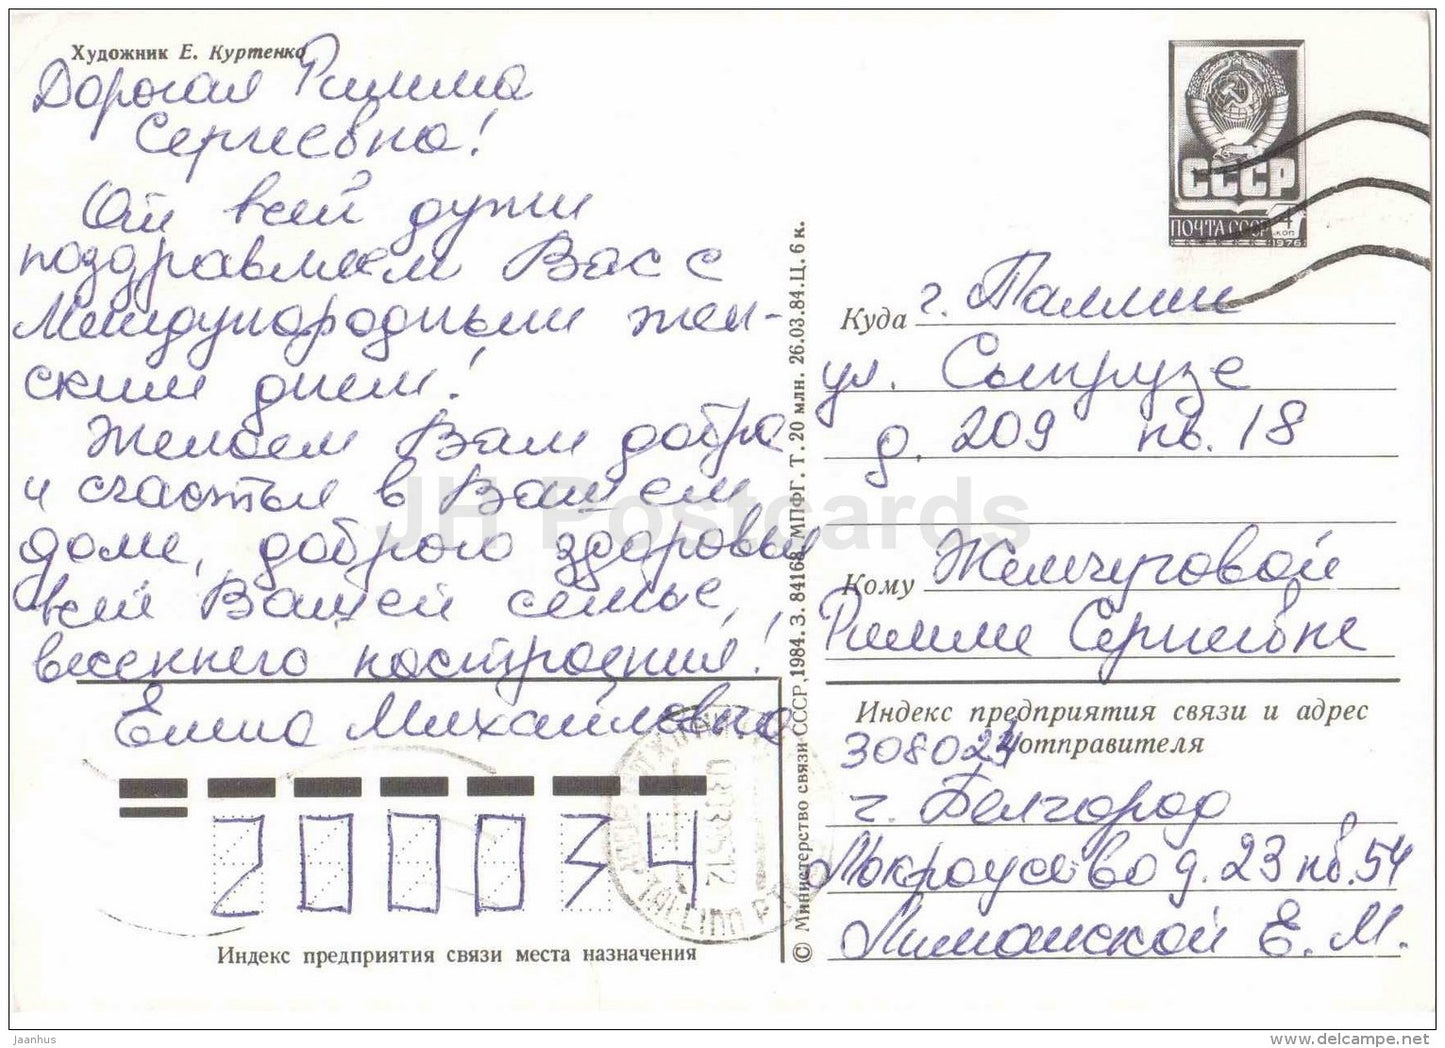 Художник Е. Куртенко
Дорогая Римма
Сергиевна!
От всей души
поздравляем Вас с
Международным жен-
ским днем!
Желаем Вам добра
и счастья в Вашем
доме, доброго здоровья
всей Вашей семье,
весеннего настроения!
Елена Михайловна
200034
Индекс предприятия связи места назначения
© Министерство связи СССР, 1984. З. 84168. МПФГ. Т. 20 млн. 26.03.84. Ц. 6 к.
СССР
ПОЧТА СССР
4
КОП
1976
Куда г. Таллин
ул. Сыпрузе
д. 209 кв. 18
Кому Жемчуговой
Римме Сергиевне
Индекс предприятия связи и адрес
отправителя
308024
г. Белгород
д. 23 кв. 54
Лиманской Е. М.
TALLINN
JH Postcards
jaanhus
www.delcampe.net